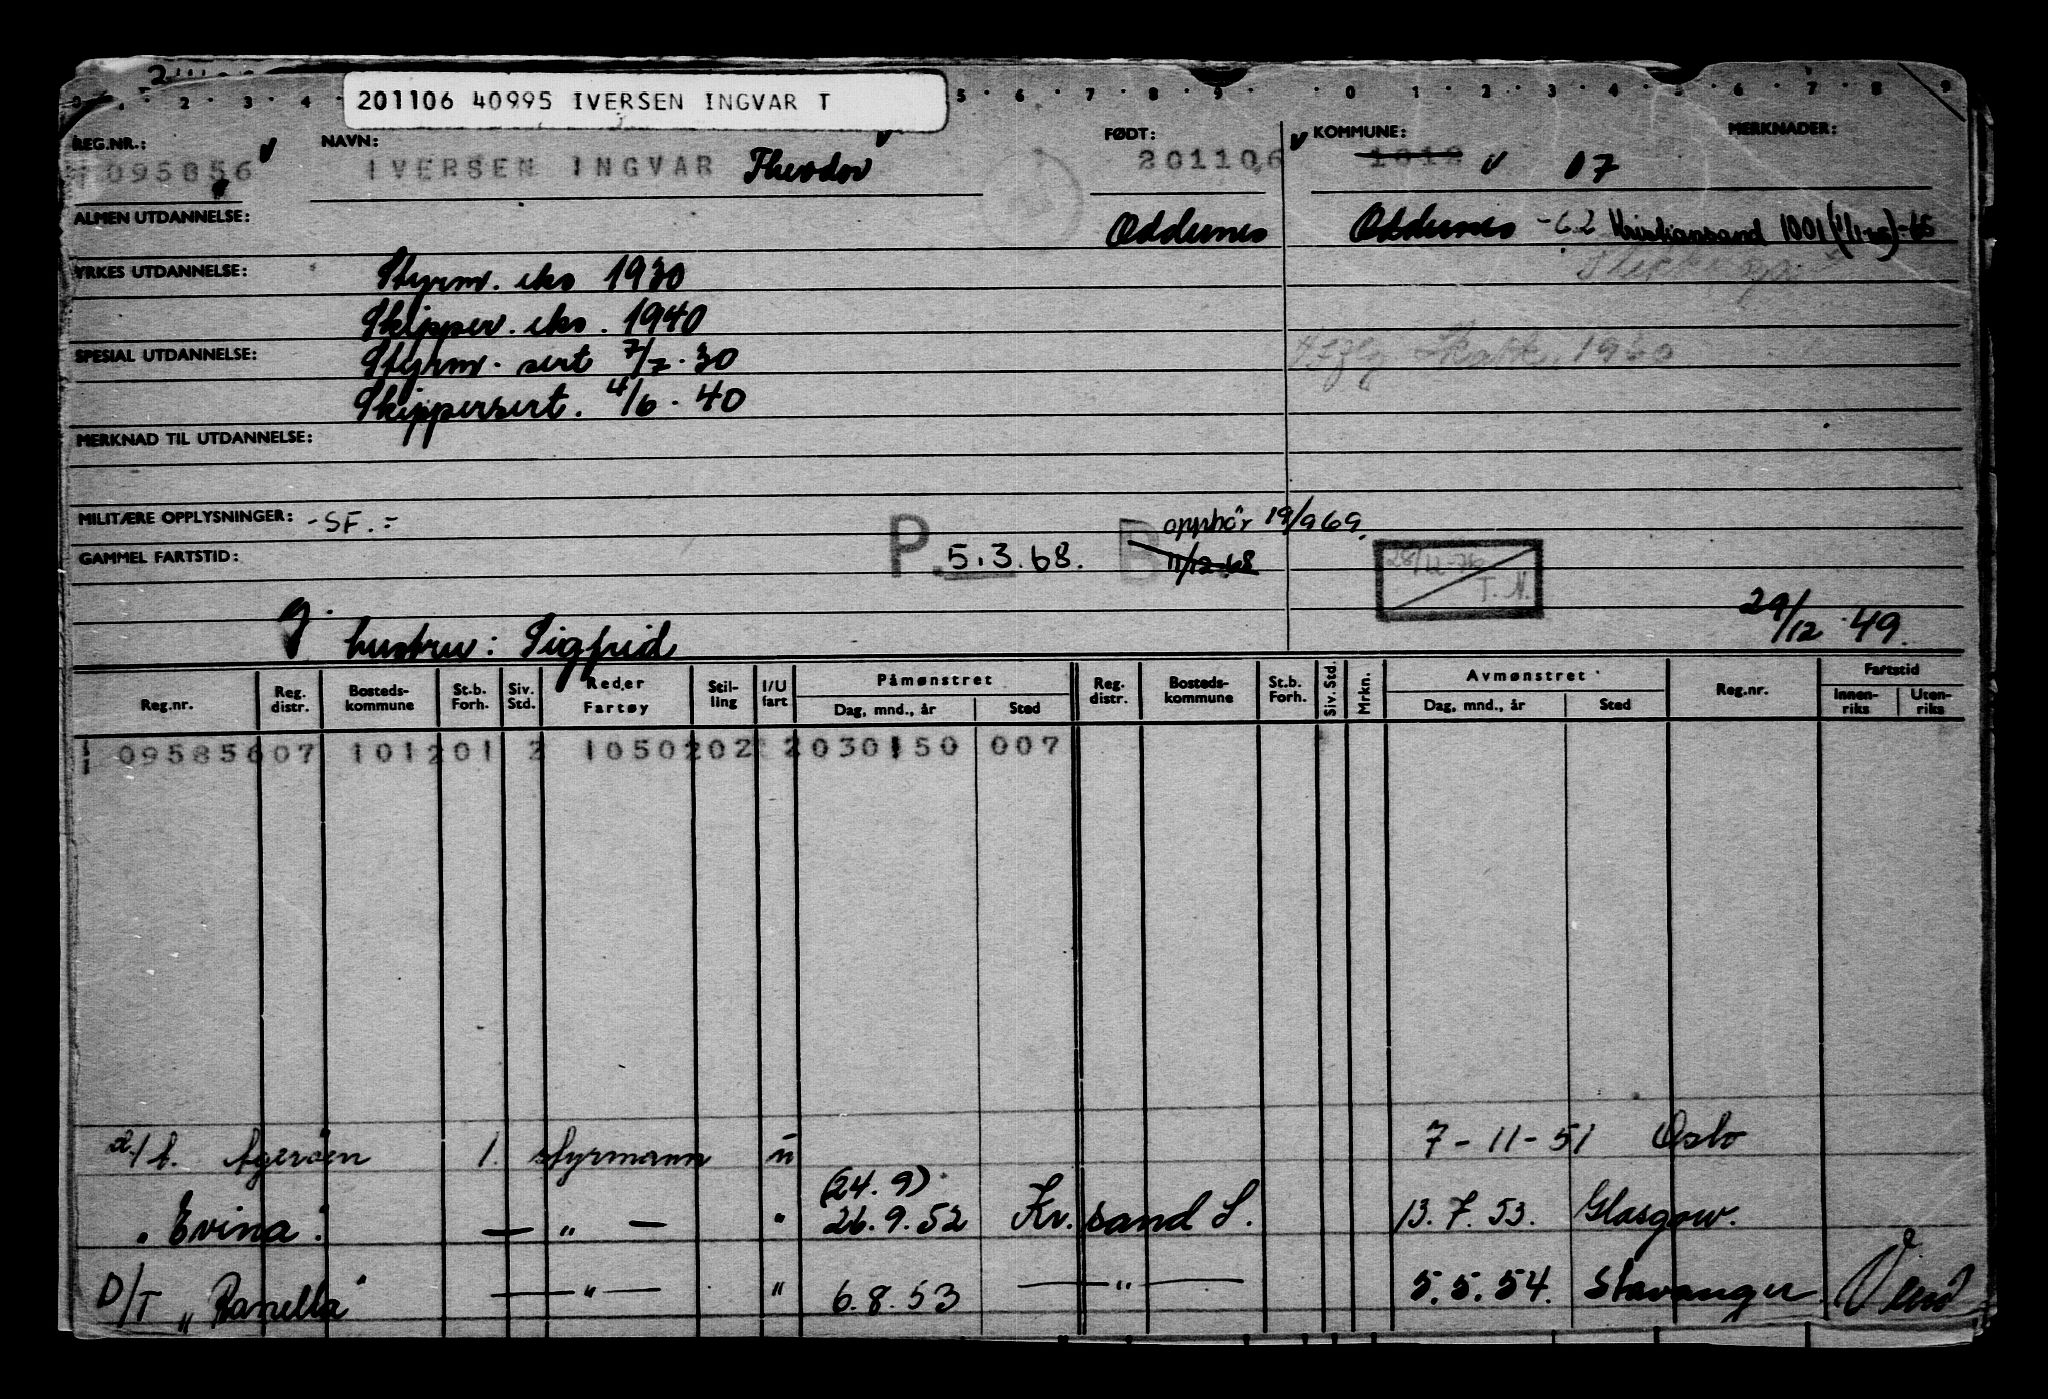 201106 40995 IVERSEN INGVAR T
REG.NR.: NAVN: FØDT: KOMMUNE: MERKNADER:
095856 IVERSEN INGVAR Theodor 201106 07
ALMEN UTDANNELSE: Oddernes Oddernes -62 Kristiansand 1001
YRKES UTDANNELSE: Styrm. eks 1930
Skipper. eks. 1940
SPESIAL UTDANNELSE: Styrm. sert 7/7.30
Skippersert. 4/6.40
MERKNAD TIL UTDANNELSE:
MILITÆRE OPPLYSNINGER: -SF.- P. 5.3.68. B opphør 19/9 69.
GAMMEL FARTSTID: 11/12-68
T.N.
g. hustru: Sigfrid 29/12 49.
Reg.nr. Reg. distr. Bosteds-kommune St.b. Forh. Siv. Std. Reder Fartøy Stil-ling I/U fart Påmønstret Dag, mnd., år Sted Reg. distr. Bosteds-kommune St.b. Forh. Siv. Std. Mrkn. Avmønstret Dag, mnd., år Sted Reg.nr. Fartstid Innen-riks Uten-riks
095856 07 1012 01 2 1050202 2 030150 007
1. styrmann u 7-11-51 Oslo
(24.9)
" Evina." — " — " 26.9.52 Kr.sand S. 13.7.53. Glasgow.
D/T "Ranella" — " — " 6.8.53 — " — 5.5.54. Stavanger. Vend